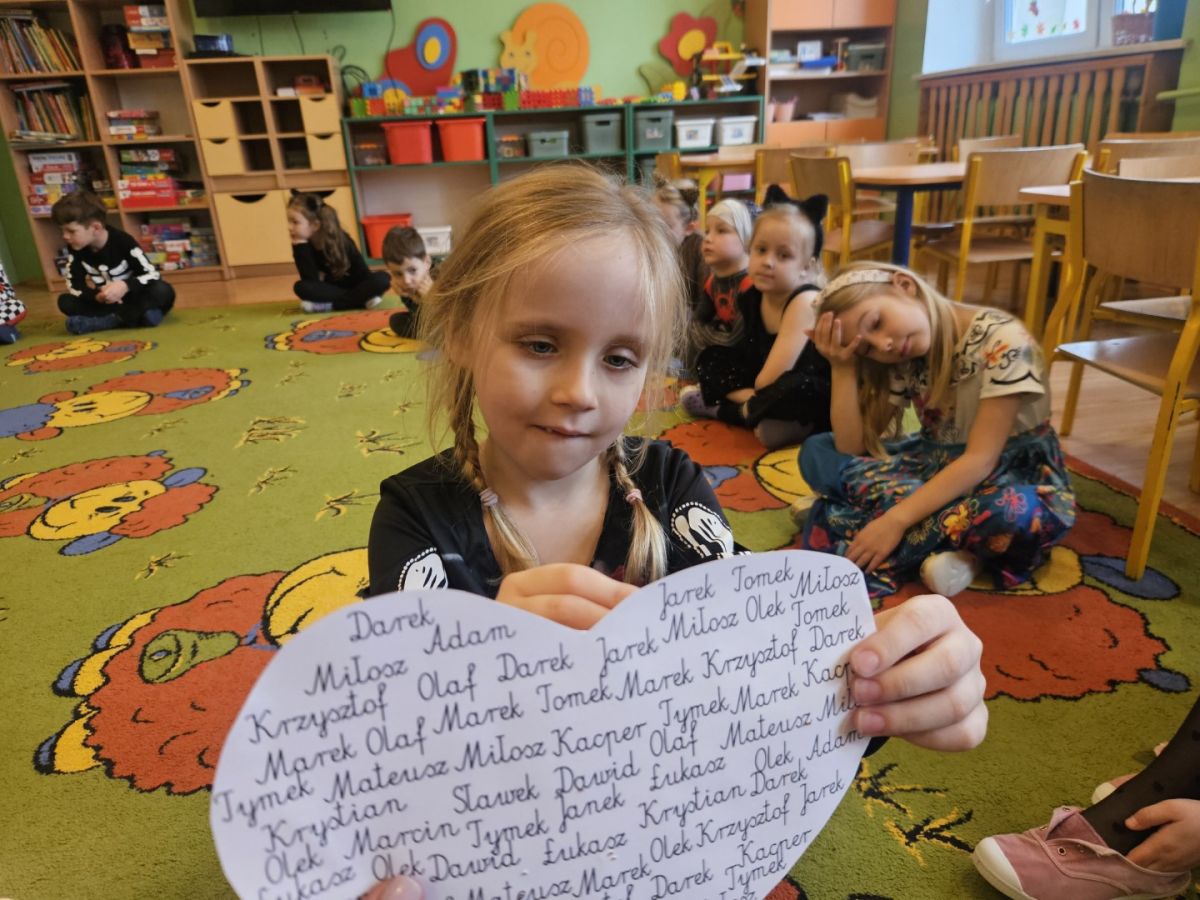 Darek
Miłosz Adam Jarek Tomek Miłosz
Krzysztof Olaf Darek Jarek Miłosz Olek Tomek
Marek Olaf Marek Tomek Marek Krzysztof Darek
Tymek Mateusz Miłosz Kacper Tymek Marek Kacp
Krystian Sławek Dawid Olaf Mateusz Mił
Olek Marcin Tymek Janek Łukasz Olek Adam
Łukasz Olek Dawid Łukasz Krystian Darek
Mateusz Marek Olek Krzysztof Jarek
Darek Kacper
Tymek